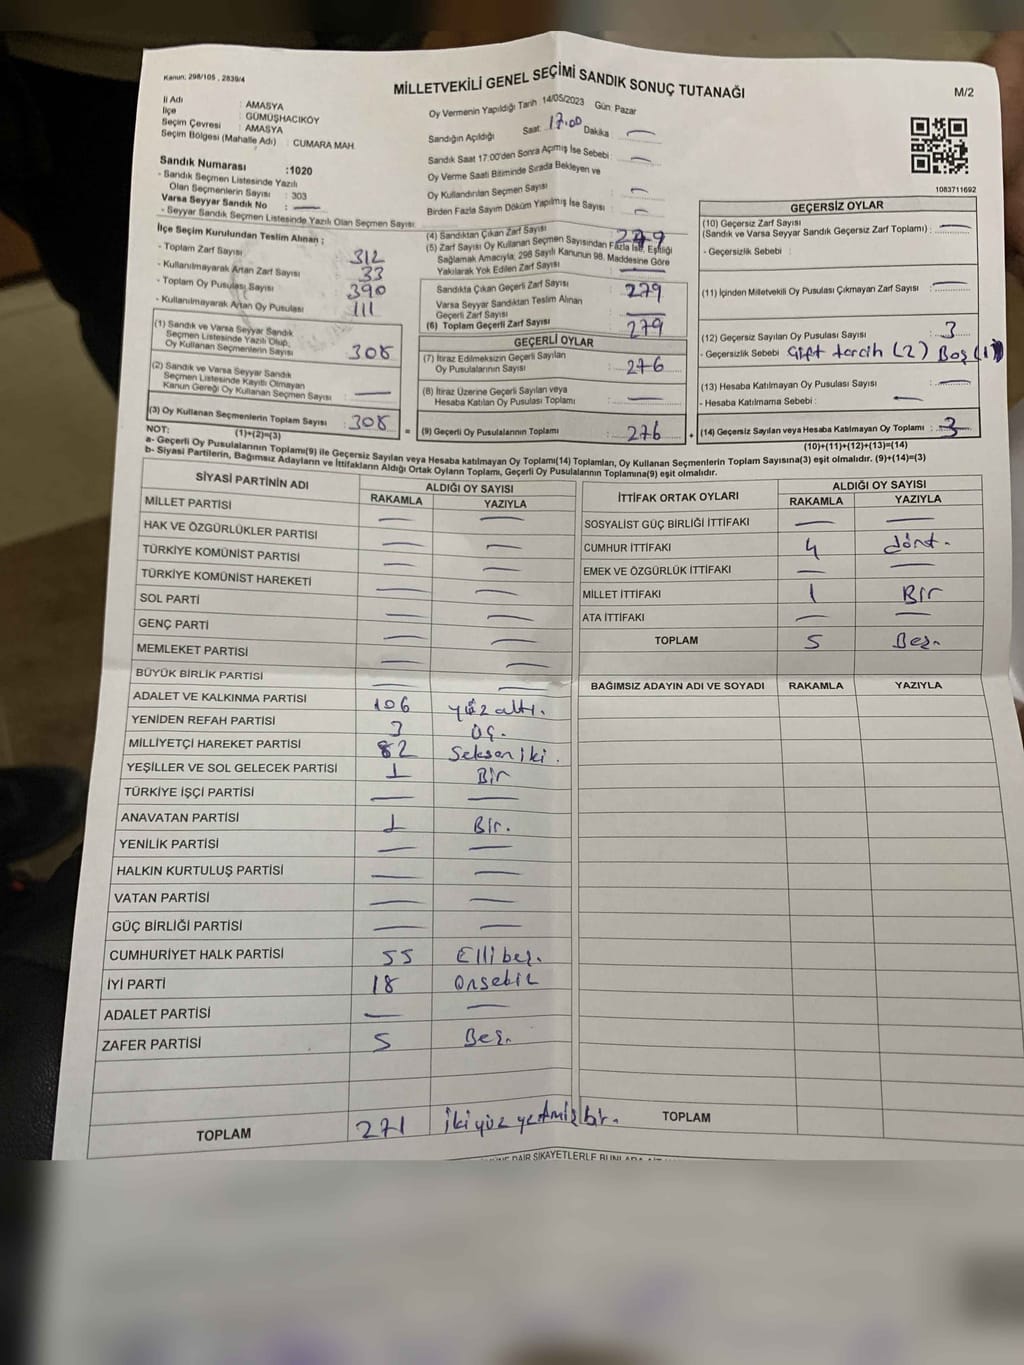 Kanun; 298/105 , 2839/4
MİLLETVEKİLİ GENEL SEÇİMİ SANDIK SONUÇ TUTANAĞI
M/2
İl Adı : AMASYA
İlçe : GÜMÜŞHACIKÖY
Seçim Çevresi : AMASYA
Seçim Bölgesi (Mahalle Adı) : CUMARA MAH.
Sandık Numarası :1020
- Sandık Seçmen Listesinde Yazılı
Olan Seçmenlerin Sayısı : 303
Varsa Seyyar Sandık No : —
- Seyyar Sandık Seçmen Listesinde Yazılı Olan Seçmen Sayısı:
Oy Vermenin Yapıldığı Tarih 14/05/2023 Gün: Pazar
Sandığın Açıldığı Saat: 17.00 Dakika : —
Sandık Saat 17:00'den Sonra Açımış İse Sebebi : —
Oy Verme Saati Bitiminde Sırada Bekleyen ve
Oy Kullandırılan Seçmen Sayısı : —
Birden Fazla Sayım Döküm Yapılmış İse Sayısı : —
1083711692
İlçe Seçim Kurulundan Teslim Alınan ;
- Toplam Zarf Sayısı : 312
- Kullanılmayarak Artan Zarf Sayısı : 33
- Toplam Oy Pusulası Sayısı : 390
- Kullanılmayarak Artan Oy Pusulası : 111
(1) Sandık ve Varsa Seyyar Sandık
Seçmen Listesinde Yazılı Olup,
Oy Kullanan Seçmenlerin Sayısı : 308
(2) Sandık ve Varsa Seyyar Sandık
Seçmen Listesinde Kayıtlı Olmayan
Kanun Gereği Oy Kullanan Seçmen Sayısı : —
(3) Oy Kullanan Seçmenlerin Toplam Sayısı : 308
(1)+(2)=(3)
(4) Sandıktan Çıkan Zarf Sayısı : 279
(5) Zarf Sayısı Oy Kullanan Seçmen Sayısından Fazla İse, Eşitliği
Sağlamak Amacıyla; 298 Sayılı Kanunun 98. Maddesine Göre
Yakılarak Yok Edilen Zarf Sayısı : —
Sandıkta Çıkan Geçerli Zarf Sayısı : 279
Varsa Seyyar Sandıktan Teslim Alınan
Geçerli Zarf Sayısı : —
(6) Toplam Geçerli Zarf Sayısı : 279
GEÇERLİ OYLAR
(7) İtiraz Edilmeksizin Geçerli Sayılan
Oy Pusulalarının Sayısı : 276
(8) İtiraz Üzerine Geçerli Sayılan veya
Hesaba Katılan Oy Pusulası Toplamı : —
= (9) Geçerli Oy Pusulalarının Toplamı : 276 +
GEÇERSİZ OYLAR
(10) Geçersiz Zarf Sayısı
(Sandık ve Varsa Seyyar Sandık Geçersiz Zarf Toplamı) : —
- Geçersizlik Sebebi :
(11) İçinden Milletvekili Oy Pusulası Çıkmayan Zarf Sayısı : —
(12) Geçersiz Sayılan Oy Pusulası Sayısı : 3
- Geçersizlik Sebebi : Çift tercih (2) Boş (1)
(13) Hesaba Katılmayan Oy Pusulası Sayısı : —
- Hesaba Katılmama Sebebi : —
(14) Geçersiz Sayılan veya Hesaba Katılmayan Oy Toplamı : 3
(10)+(11)+(12)+(13)=(14)
NOT:
a- Geçerli Oy Pusulalarının Toplamı(9) ile Geçersiz Sayılan veya Hesaba katılmayan Oy Toplamı(14) Toplamları, Oy Kullanan Seçmenlerin Toplam Sayısına(3) eşit olmalıdır. (9)+(14)=(3)
b- Siyasi Partilerin, Bağımsız Adayların ve İttifakların Aldığı Ortak Oyların Toplamı, Geçerli Oy Pusulalarının Toplamına(9) eşit olmalıdır.
SİYASİ PARTİNİN ADI ALDIĞI OY SAYISI
RAKAMLA YAZIYLA
MİLLET PARTİSİ — —
HAK VE ÖZGÜRLÜKLER PARTİSİ — —
TÜRKİYE KOMÜNİST PARTİSİ — —
TÜRKİYE KOMÜNİST HAREKETİ — —
SOL PARTİ — —
GENÇ PARTİ — —
MEMLEKET PARTİSİ — —
BÜYÜK BİRLİK PARTİSİ — —
ADALET VE KALKINMA PARTİSİ 106 yüz altı.
YENİDEN REFAH PARTİSİ 3 üç.
MİLLİYETÇİ HAREKET PARTİSİ 82 Seksen iki.
YEŞİLLER VE SOL GELECEK PARTİSİ 1 Bir
TÜRKİYE İŞÇİ PARTİSİ — —
ANAVATAN PARTİSİ 1 Bir.
YENİLİK PARTİSİ — —
HALKIN KURTULUŞ PARTİSİ — —
VATAN PARTİSİ — —
GÜÇ BİRLİĞİ PARTİSİ — —
CUMHURİYET HALK PARTİSİ 55 Elli beş.
İYİ PARTİ 18 Onsekiz
ADALET PARTİSİ — —
ZAFER PARTİSİ 5 Beş.
TOPLAM 271 iki yüz yetmiş bir.
İTTİFAK ORTAK OYLARI ALDIĞI OY SAYISI
RAKAMLA YAZIYLA
SOSYALİST GÜÇ BİRLİĞİ İTTİFAKI — —
CUMHUR İTTİFAKI 4 dört.
EMEK VE ÖZGÜRLÜK İTTİFAKI — —
MİLLET İTTİFAKI 1 Bir
ATA İTTİFAKI — —
TOPLAM 5 Beş.
BAĞIMSIZ ADAYIN ADI VE SOYADI RAKAMLA YAZIYLA
TOPLAM